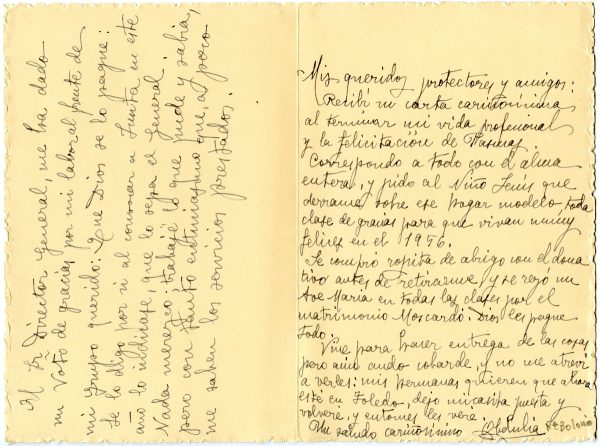 Mis queridos protectores y amigos:
Recibí su carta cariñosísima
al terminar mi vida profesional
y la felicitación de Pascuas.
Correspondo a todo con el alma
entera, y pido al Niño Jesús que
derrame sobre ese hogar modelo toda
clase de gracias para que vivan muy
felices en el 1956.
Se compró ropita de abrigo con el dona
tivo antes de retirarme, y se rezó un
Ave María en todas las clases por el
matrimonio Moscardó. Dios les pague
todo.
Vine para hacer entrega de las cosas
pero aún ando cobarde, y no me atreví
a verles: mis hermanas quieren que ahora
esté en Toledo, dejo mi casita puesta y
volveré, y entonces les veré.
Un saludo cariñosísimo
El Sr Director General, me ha dado
un Voto de gracias por mi labor al frente de
mi grupo querido. Que Dios se lo pague:
Se lo digo por si al conversar a Junta en este
año lo indicase que lo sepa el General
Nada merezco, trabajé lo que pude y sabía,
pero con tanto entusiasmo que, a poco
me saben los servicios prestados.